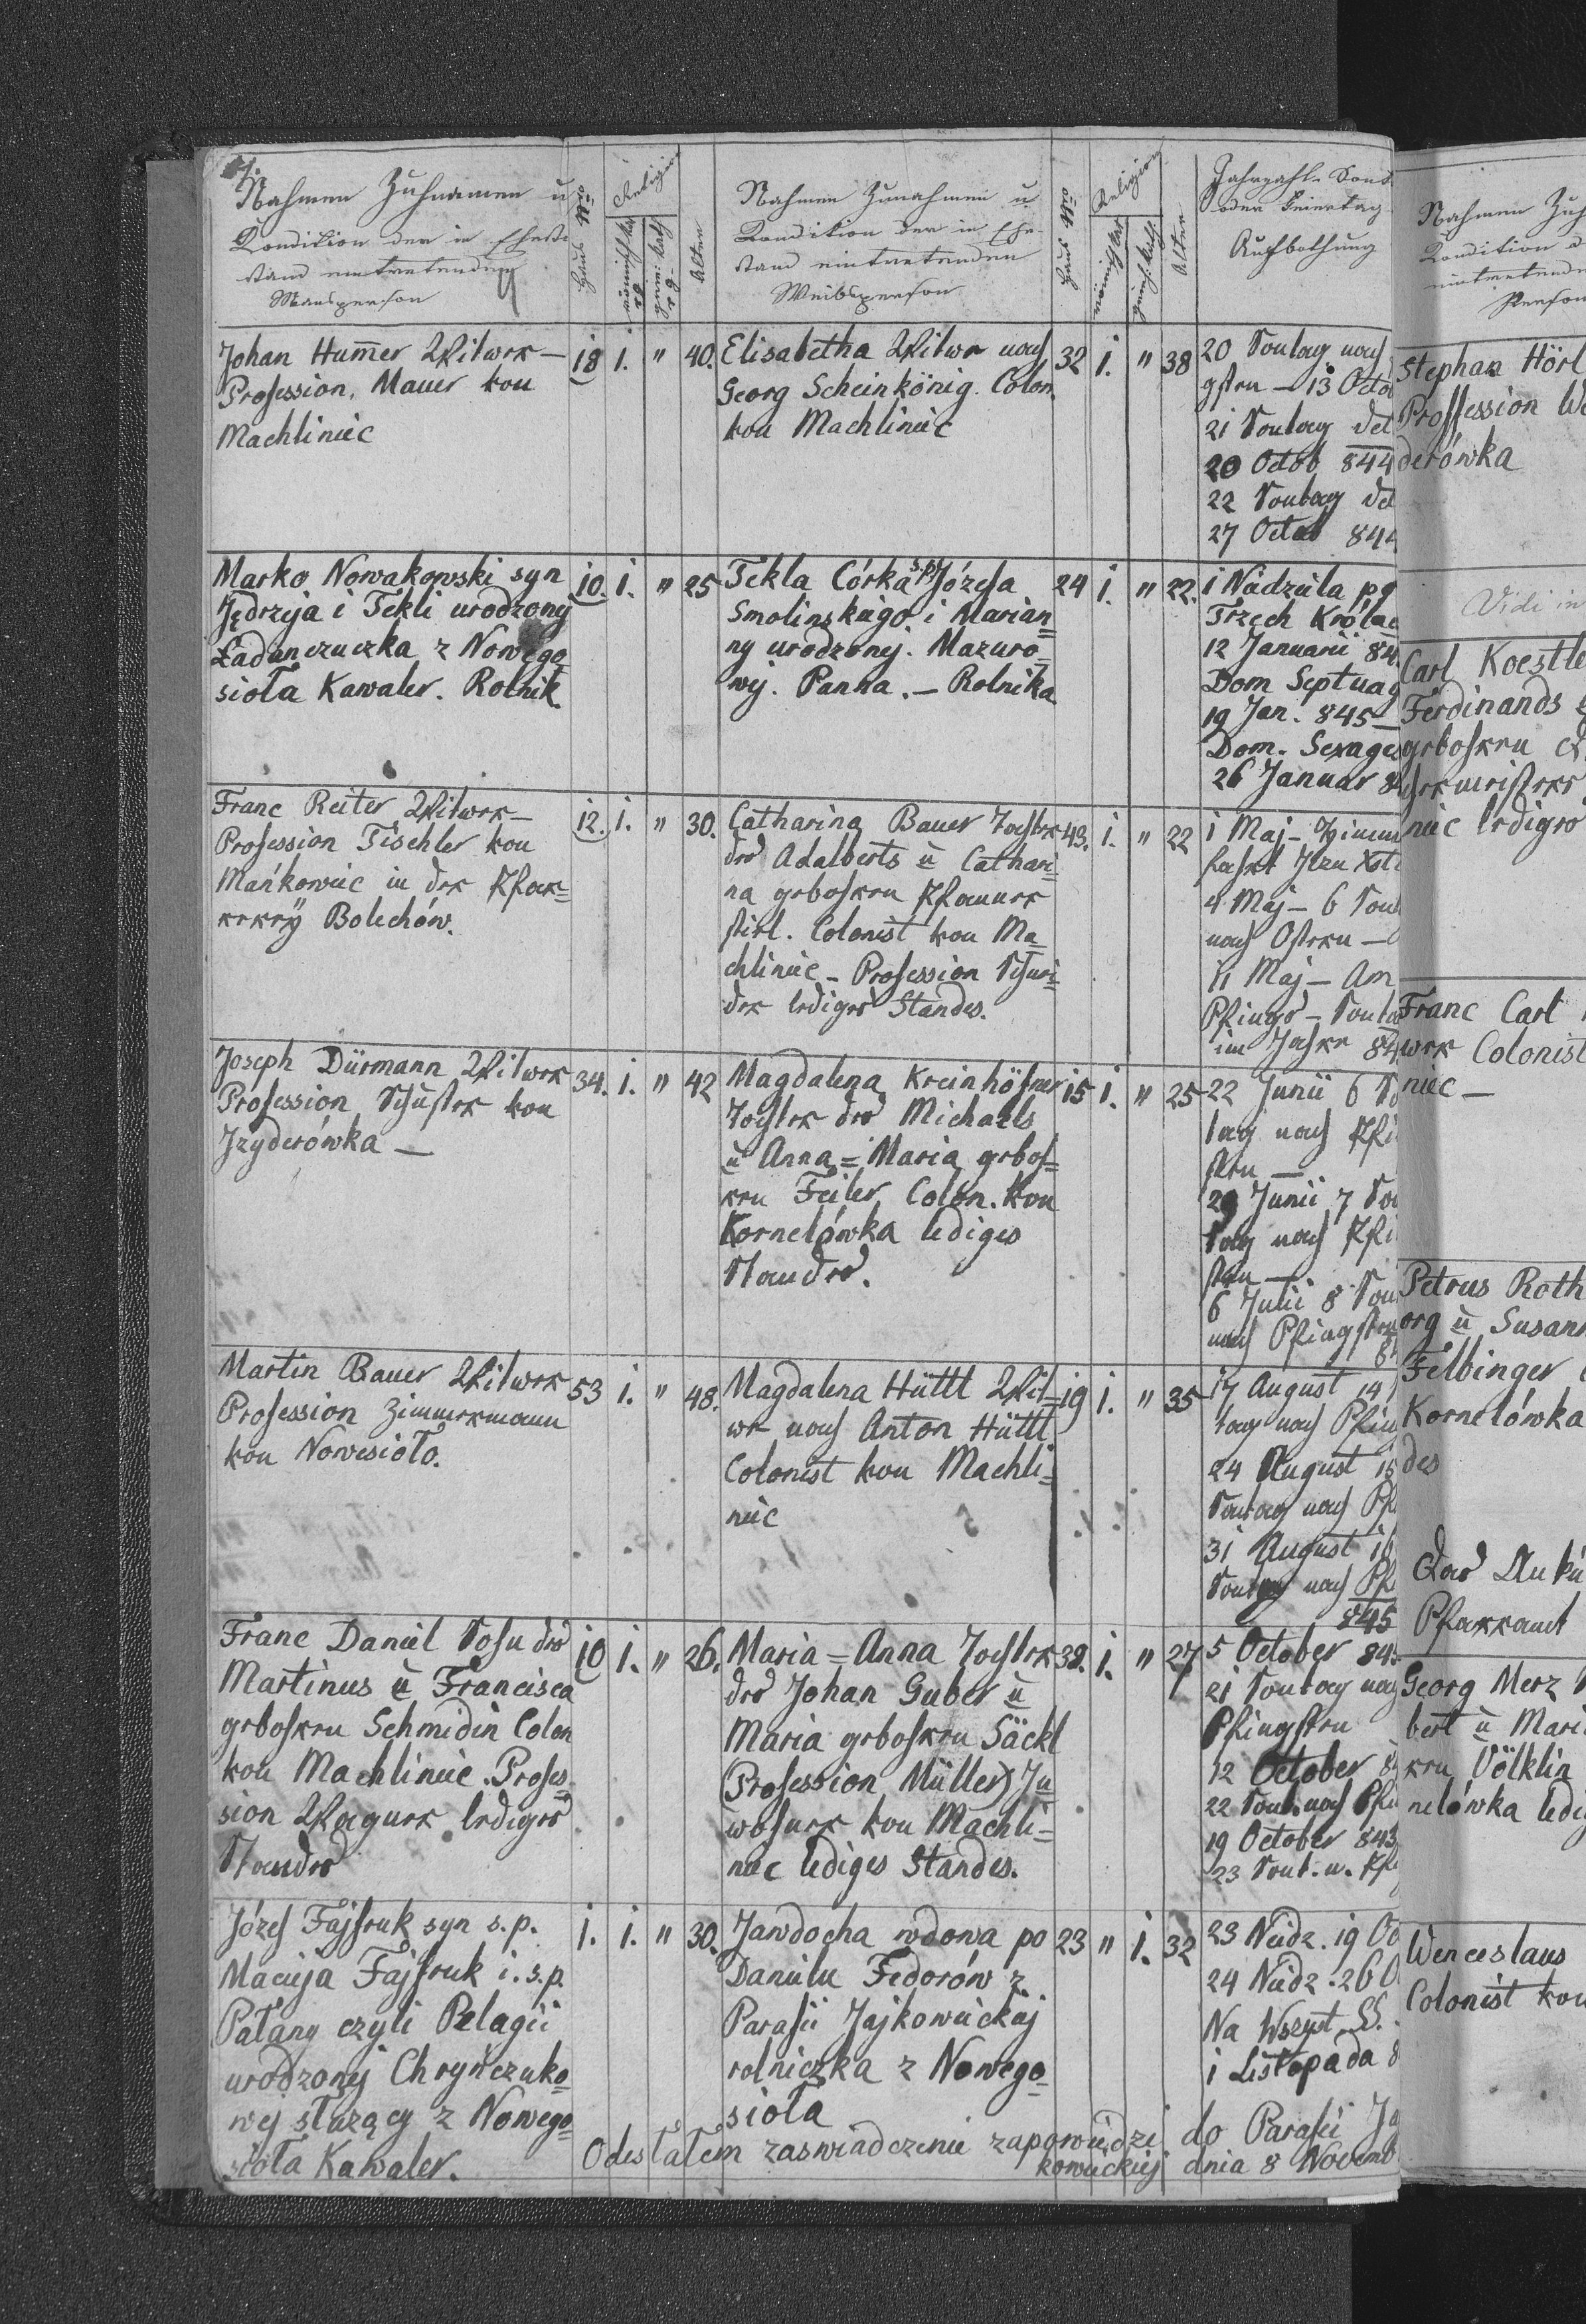 Nahmen Zuhnamen u
Kondition der in Ehe-
stand eintretenden
Mansperson
Haus Nro
Religion
römisch kat
griech: kath
Alter
Nahmen Zunahmen u
Kondition der in Ehe-
stand eintretenden
Weibsperson
Haus Nro
Religion
römisch kat
griech. kath
Alter
Jahrzahl Sont
oder Feiertag
Aufbothung
Johan Hum̄er Witwer —
Profession. Mauer von
Machliniec
18 1. " 40.
Elisabetha Witwe nach
Georg Scheinkönig. Colon.
von Machliniec
32 1. " 38
20 Sontag nach
gsten — 13 Octo
21 Sontag det
20 Octob 844
22 Sontag det
27 Octob 844
Marko Nowakowski syn
Jędrzeja i Tekli urodzony
Ładanczuczka z Nowego=
sioła Kawaler. Rolnik
10. 1. " 25
Tekla Córka s.p. Józefa
Smolinskiego i Marian=
ny urodzonej. Mazuro=
wej. Panna. — Rolnika
24 1. " 22.
1 Niedziela po
Trzech Króla
12 Januarii 84
Dom Septuag
19 Jan. 845 —
Dom. Sexages
26 Januar 8
Franc Reiter Witwer —
Profession Tischler von
Mańkowiec in der Pfar=
rerey Bolechów.
12. 1. " 30.
Catharina Bauer Tochter
des Adalberts ü Cathari=
na gebohren Pfanner
stirl. Colonist von Ma=
chliniec — Profession Schnei=
der lediges Standes.
43. 1. " 22
1 Maj — Himm
fahrt Jesu Xsti
4 Maj — 6 Sont
nach Ostern —
11 Maj — Am
Pfings — Sonta
im Jahre 84
Joseph Dürmann Witwer
Profession Schuster von
Izydorówka —
34. 1. " 42
Magdalena Kreinhöfner
Tochter des Michaels
ü Anna = Maria geboh=
ren Feiler Colon. von
Kornelówka lediges
Standes.
15 1. " 25
22 Junii 6 So
tag nach Pfi
sten —
29 Junii 7 So
tag nach Pfi
sten —
6 Julii 8 Son
nach Pfingsten
8
Martin Bauer Witwer
Profession Zimmermann
von Nowesioło.
53 1. " 48.
Magdalena Hüttl Wit=
we nach Anton Hüttl
Colonist von Machli=
niec
19 1. " 35
17 August 14
tag nach Pfin
24 August 15
Sontag nach Pf
31 August 16
Sontag nach Pf
845
Franc Daniel Sohn des
Martinus ü Francisca
gebohren Schmidin Colon
von Machliniec. Profes=
sion Wagner lediges
Standes
10 1. " 26.
Maria = Anna Tochter
des Johan Guber ü
Maria gebohren Säckl
(Profession Müller) In=
wohner von Machli=
niec lediges Standes.
38. 1. " 27
5 October 845
21 Sontag nach
Pfingsten
12 October 8
22 Sont. nach Pfi
19 October 845
23 Sont. n. Pf
Józef Fajfruk syn s.p.
Macieja Fajfruk i. s.p.
Pałany czyli Pelagii
urodzonej Chryńczuko=
wej służący z Nowego=
sioła Kawaler.
1. 1. " 30.
Jawdocha wdowa po
Danielu Fedorów z
Parafii Jajkowieckiej
rolniczka z Nowego=
sioła
23 " 1. 32
23 Niedz. 19 Oc
24 Niedz. 26 O
Na Wszyst. SS.
1 Listopada 8
Odesłałem zaswiadczenie zapowiedzi do Parafii Ja
kowieckiej dnia 8 Novemb
Nahmen Zuh
Kondition d
eintretende
Person
Stephan Hörl
Proffession We
derówka
Vidi in
Carl Koestle
Ferdinands
gebohren
niec lediges
Franc Carl
wer Colonist
niec —
Petrus Roth
org ü Susann
Felbinger
Kornelówka
des
Pfarramt
Georg Merz
bert ü Mari
ren Völklin
nelówka ledi
Wenceslaus
Colonist von